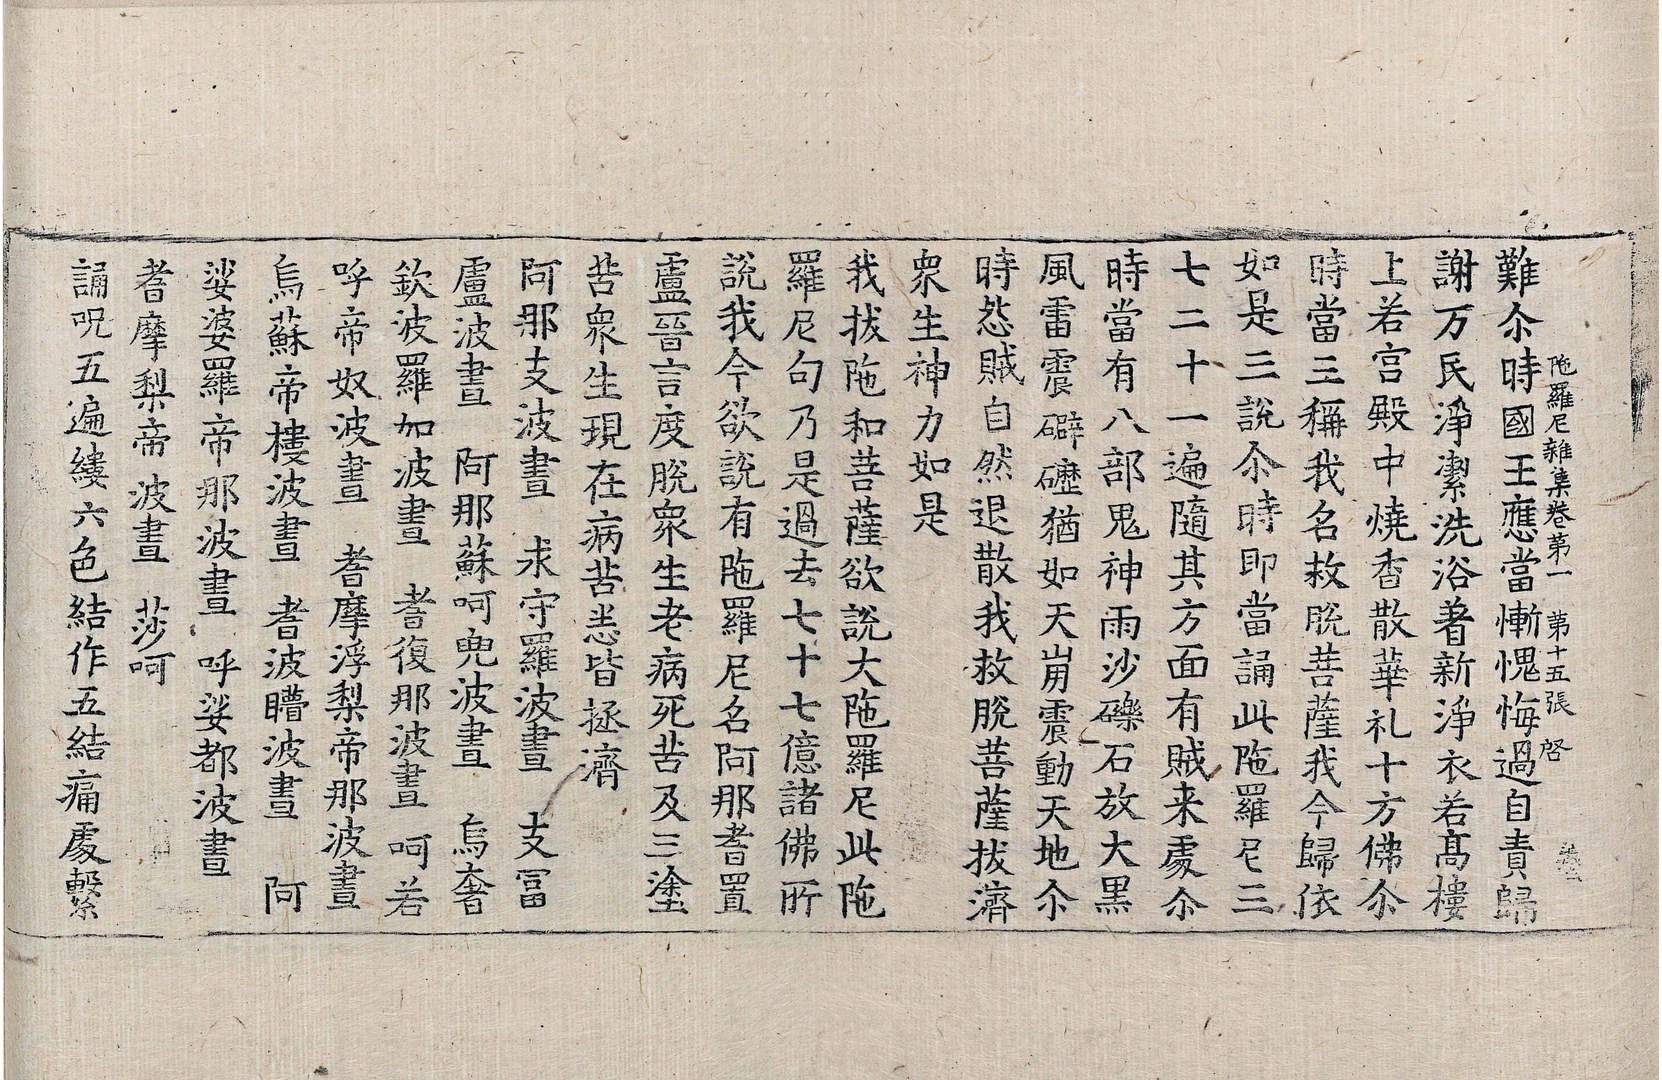 陁羅尼雜集卷第一 第十五張 啓
難尒時國王應當慚愧悔過自責歸
謝万民淨潔洗浴著新淨衣若髙樓
上若宫殿中燒香散華礼十方佛尒
時當三稱我名救脫菩薩我今歸依
如是三說尒時即當誦此陁羅尼三
七二十一遍隨其方面有賊来處尒
時當有八部鬼神雨沙礫石放大黑
風雷震礔礰猶如天崩震動天地尒
時怨賊自然退散我救脫菩薩拔濟
衆生神力如是
我拔陁和菩薩欲說大陁羅尼此陁
羅尼句乃是過去七十七億諸佛所
說我今欲說有陁羅尼名阿那耆置
盧晉言度脫衆生老病死苦及三塗
苦衆生現在病苦恙皆拯濟
阿那支波晝 求守羅波晝 支冨
盧波晝 阿那蘇呵兜波晝 烏奢
欽波羅如波晝 耆復那波晝 呵若
呼帝奴波晝 耆摩浮梨帝那波晝
烏蘇帝樓波晝 耆波瞻波晝 阿
娑婆羅帝那波晝 呼娑都波晝
耆摩梨帝波晝 莎呵
誦呪五遍縷六色結作五結痛處繫